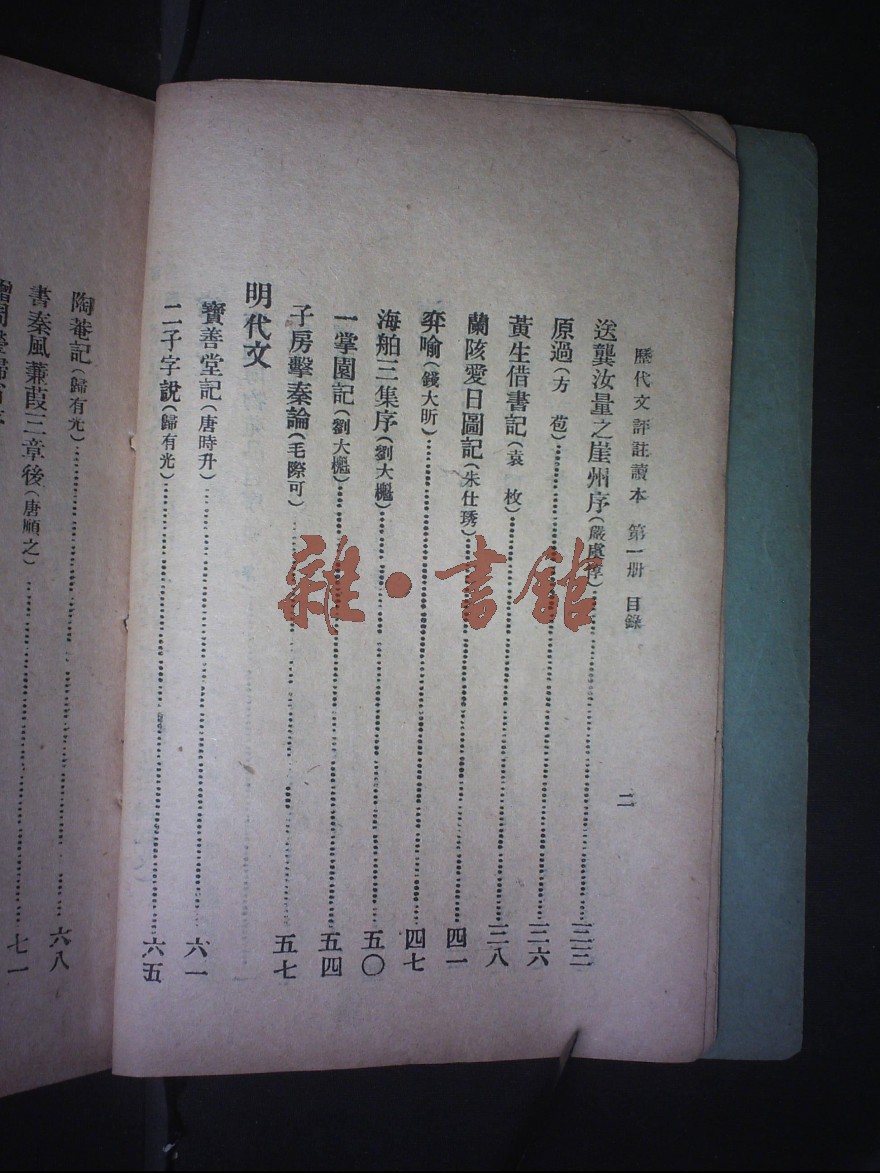 歷代文評註讀本 第一册 目錄 二
送龔汝量之崖州序(嚴虞惇)……三三
原過(方 苞)……三六
黃生借書記(袁 枚)……三八
蘭陔愛日圖記(朱仕琇)……四一
弈喻(錢大昕)……四七
海舶三集序(劉大櫆)……五〇
一掌園記(劉大櫆)……五四
子房擊秦論(毛際可)……五七
明代文
寶善堂記(唐時升)……六一
二子字說(歸有光)……六五
陶菴記(歸有光)……六八
書秦風蒹葭三章後(唐順之)……七一
雜·書館